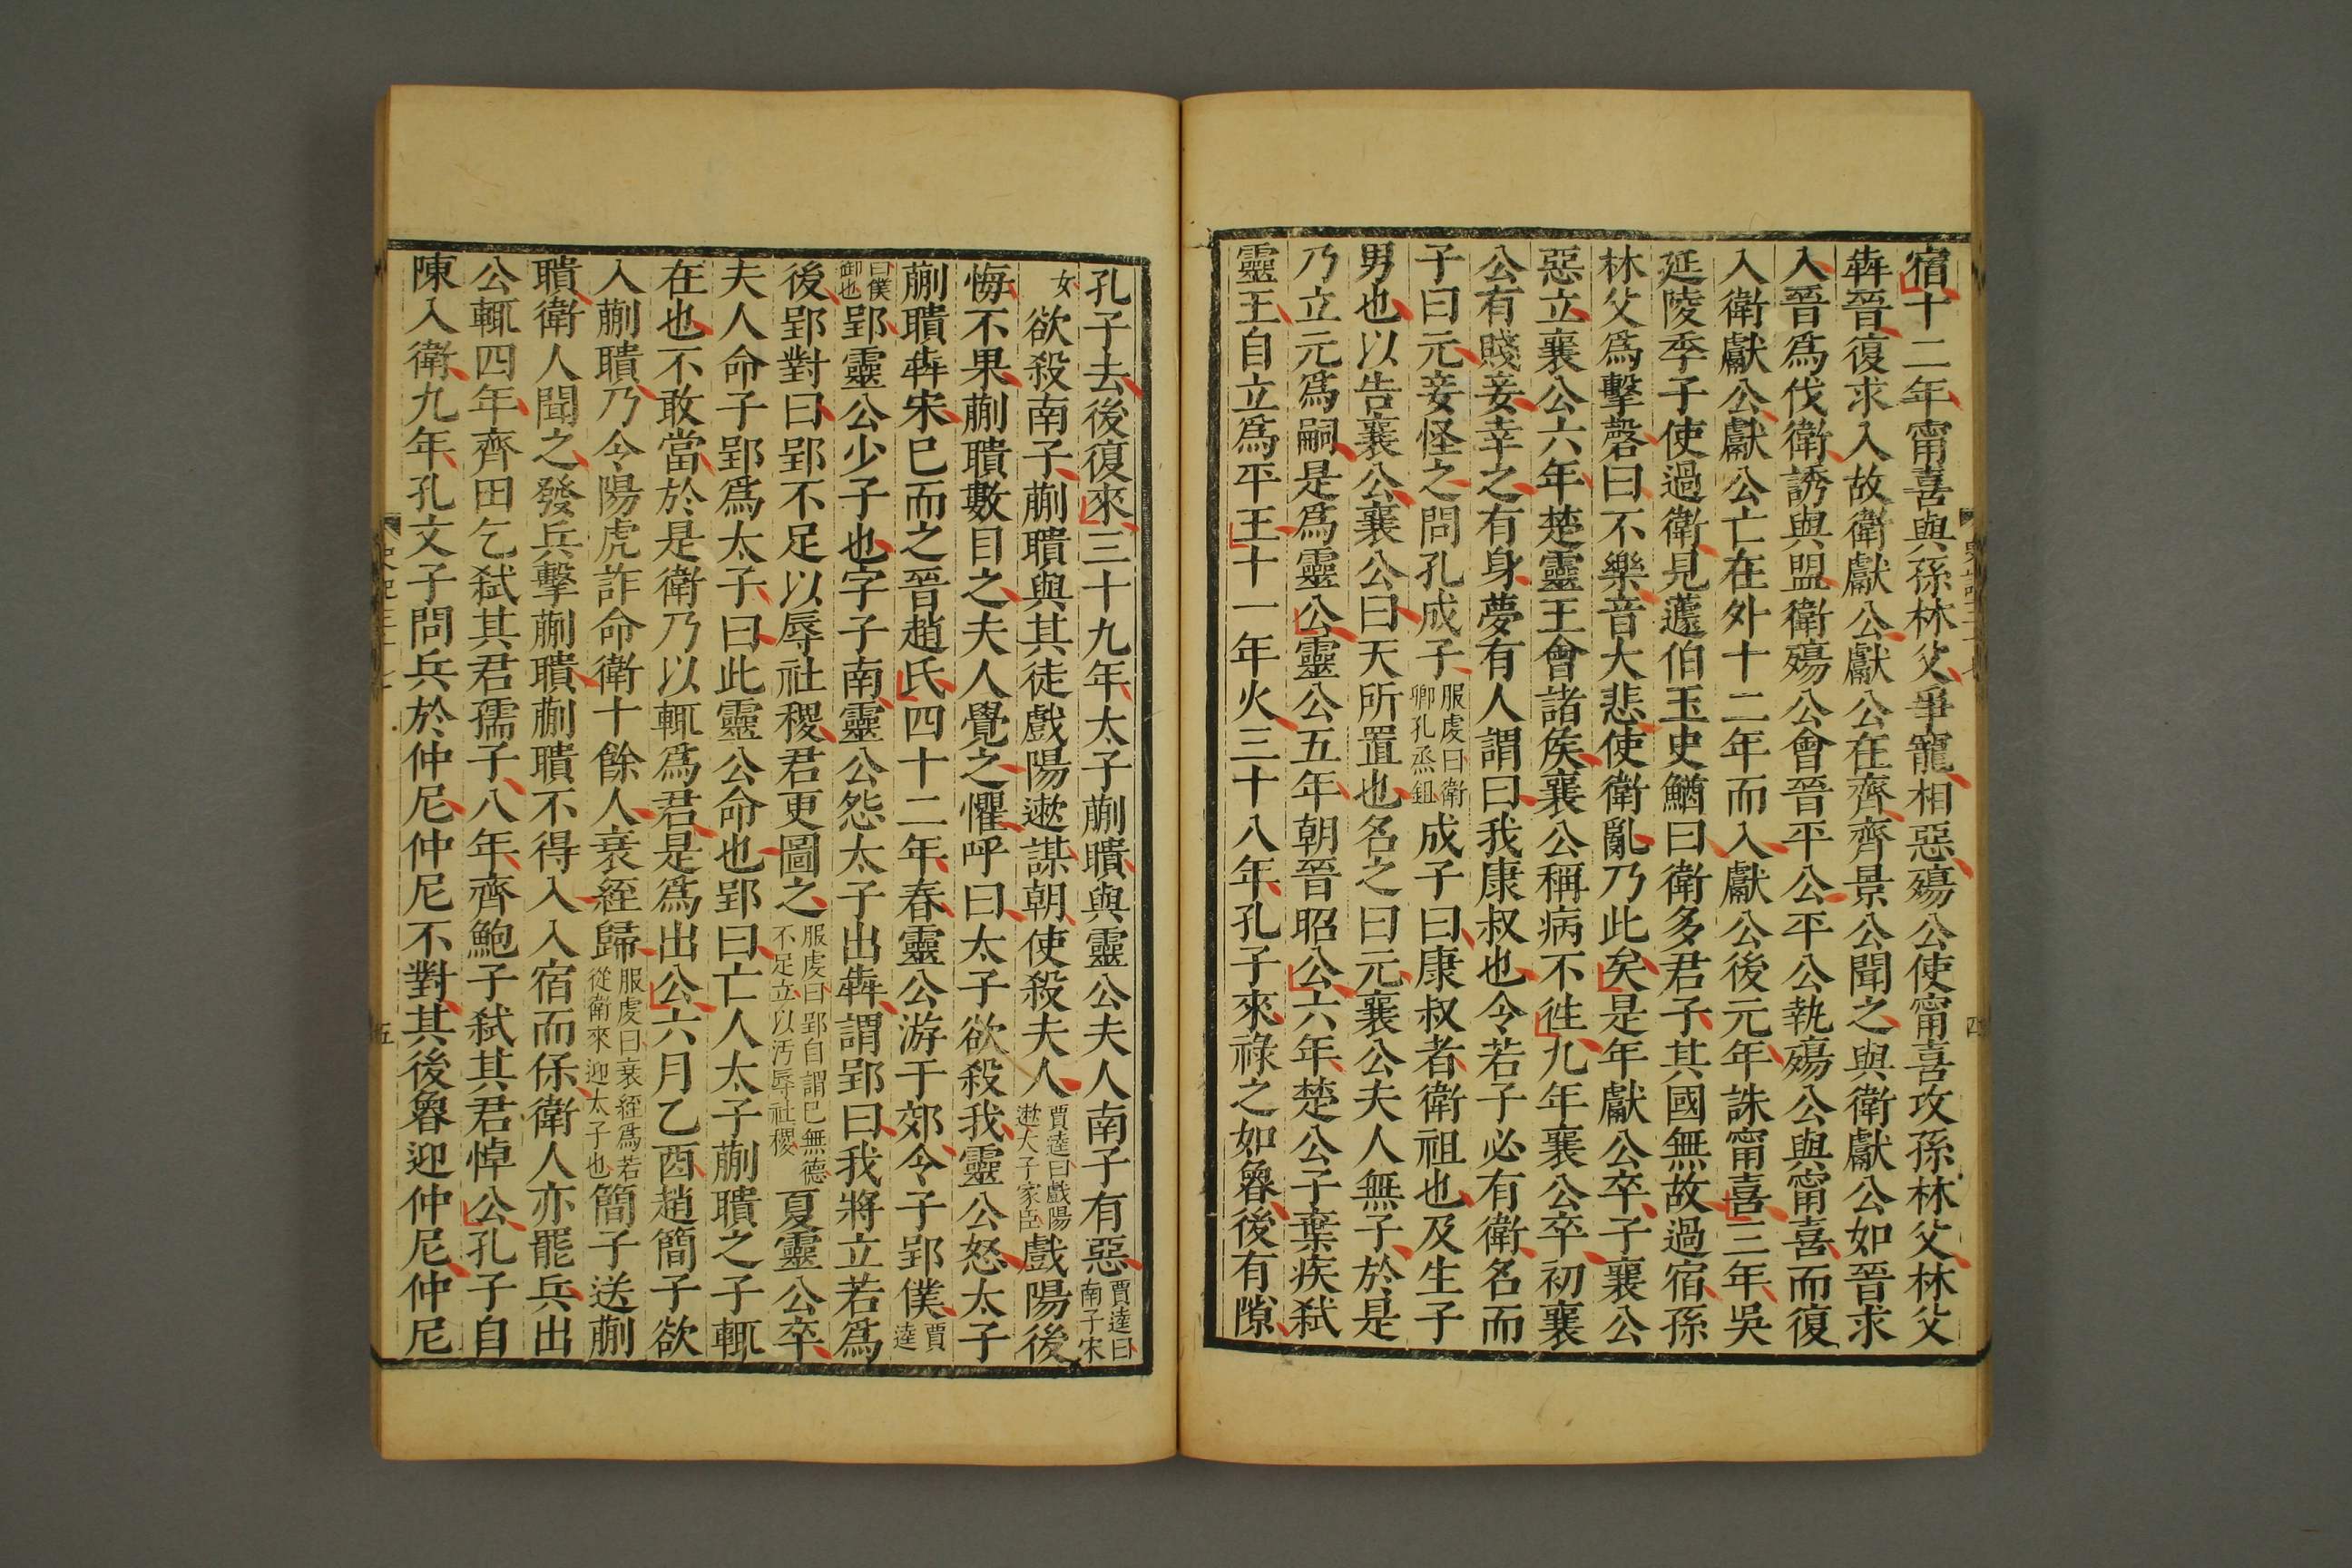 宿十二年甯喜與孫林父爭寵相惡殤公使甯喜攻孫林父林父
犇晉復求入故衛獻公獻公在齊齊景公聞之與衛獻公如晉求
入晉爲伐衛誘與盟衛殤公會晉平公平公執殤公與甯喜而復
入衛獻公獻公亡在外十二年而入獻公後元年誅甯喜三年吳
延陵季子使過衛見蘧伯玉史鰌曰衛多君子其國無故過宿孫
林父爲擊磬曰不樂音大悲使衛亂乃此矣是年獻公卒子襄公
惡立襄公六年楚靈王會諸矦襄公稱病不徃九年襄公卒初襄
公有賤妾幸之有身夢有人謂曰我康叔也今若子必有衛名而
子曰元妾怪之問孔成子服虔曰衛卿孔烝鉏成子曰康叔者衛祖也及生子
男也以告襄公襄公曰天所置也名之曰元襄公夫人無子於是
乃立元爲嗣是爲靈公靈公五年朝晉昭公六年楚公子棄疾弑
靈王自立爲平王十一年火三十八年孔子來祿之如魯後有隙
孔子去後復來三十九年太子蒯聵與靈公夫人南子有惡賈逵曰南子宋
女欲殺南子蒯聵與其徒戲陽遬謀朝使殺夫人賈逵曰戲陽遬大子家臣戲陽後
悔不果蒯聵數目之夫人覺之懼呼曰太子欲殺我靈公怒太子
蒯聵犇宋已而之晉趙氏四十二年春靈公游于郊令子郢僕賈逵
曰僕御也郢靈公少子也字子南靈公怨太子出犇謂郢曰我將立若爲
後郢對曰郢不足以辱社稷君更圖之服虔曰郢自謂已無德不足立以汚辱社稷夏靈公卒
夫人命子郢爲太子曰此靈公命也郢曰亡人太子蒯聵之子輒
在也不敢當於是衛乃以輒爲君是爲出公六月乙酉趙簡子欲
入蒯聵乃令陽虎詐命衛十餘人衰絰歸服虔曰衰絰爲若從衛來迎太子也簡子送蒯
聵衛人聞之發兵擊蒯聵蒯聵不得入入宿而保衛人亦罷兵出
公輒四年齊田乞弑其君孺子八年齊鮑子弑其君悼公孔子自
陳入衛九年孔文子問兵於仲尼仲尼不對其後魯迎仲尼仲尼
四
五